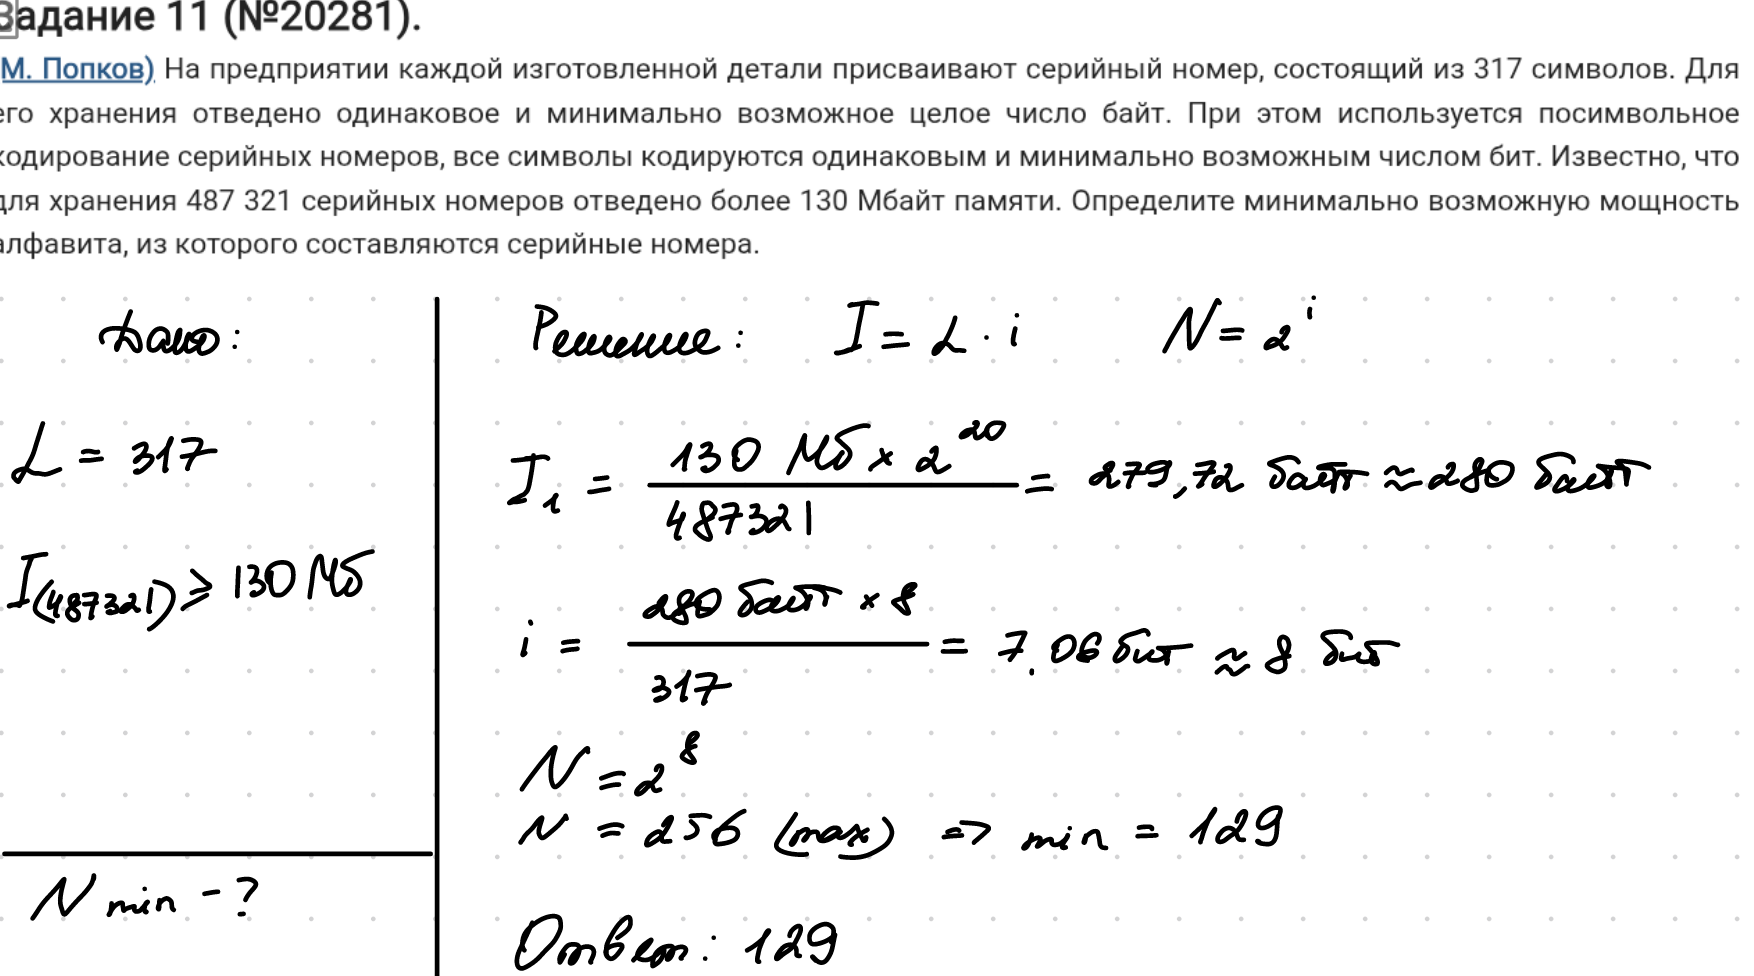 Задание 11 (№20281).
(М. Попков) На предприятии каждой изготовленной детали присваивают серийный номер, состоящий из 317 символов. Для
его хранения отведено одинаковое и минимально возможное целое число байт. При этом используется посимвольное
кодирование серийных номеров, все символы кодируются одинаковым и минимально возможным числом бит. Известно, что
для хранения 487 321 серийных номеров отведено более 130 Мбайт памяти. Определите минимально возможную мощность
алфавита, из которого составляются серийные номера.
Дано:
L = 317
I(487321) ⩾ 130 Мб
N min - ?
Решение: I = L · i N = 2^i
I₁ = 130 Мб × 2^20 / 487321 = 279,72 байт ≈ 280 байт
i = 280 байт × 8 / 317 = 7.06 бит ≈ 8 бит
N = 2^8
N = 256 (max) => min = 129
Ответ: 129